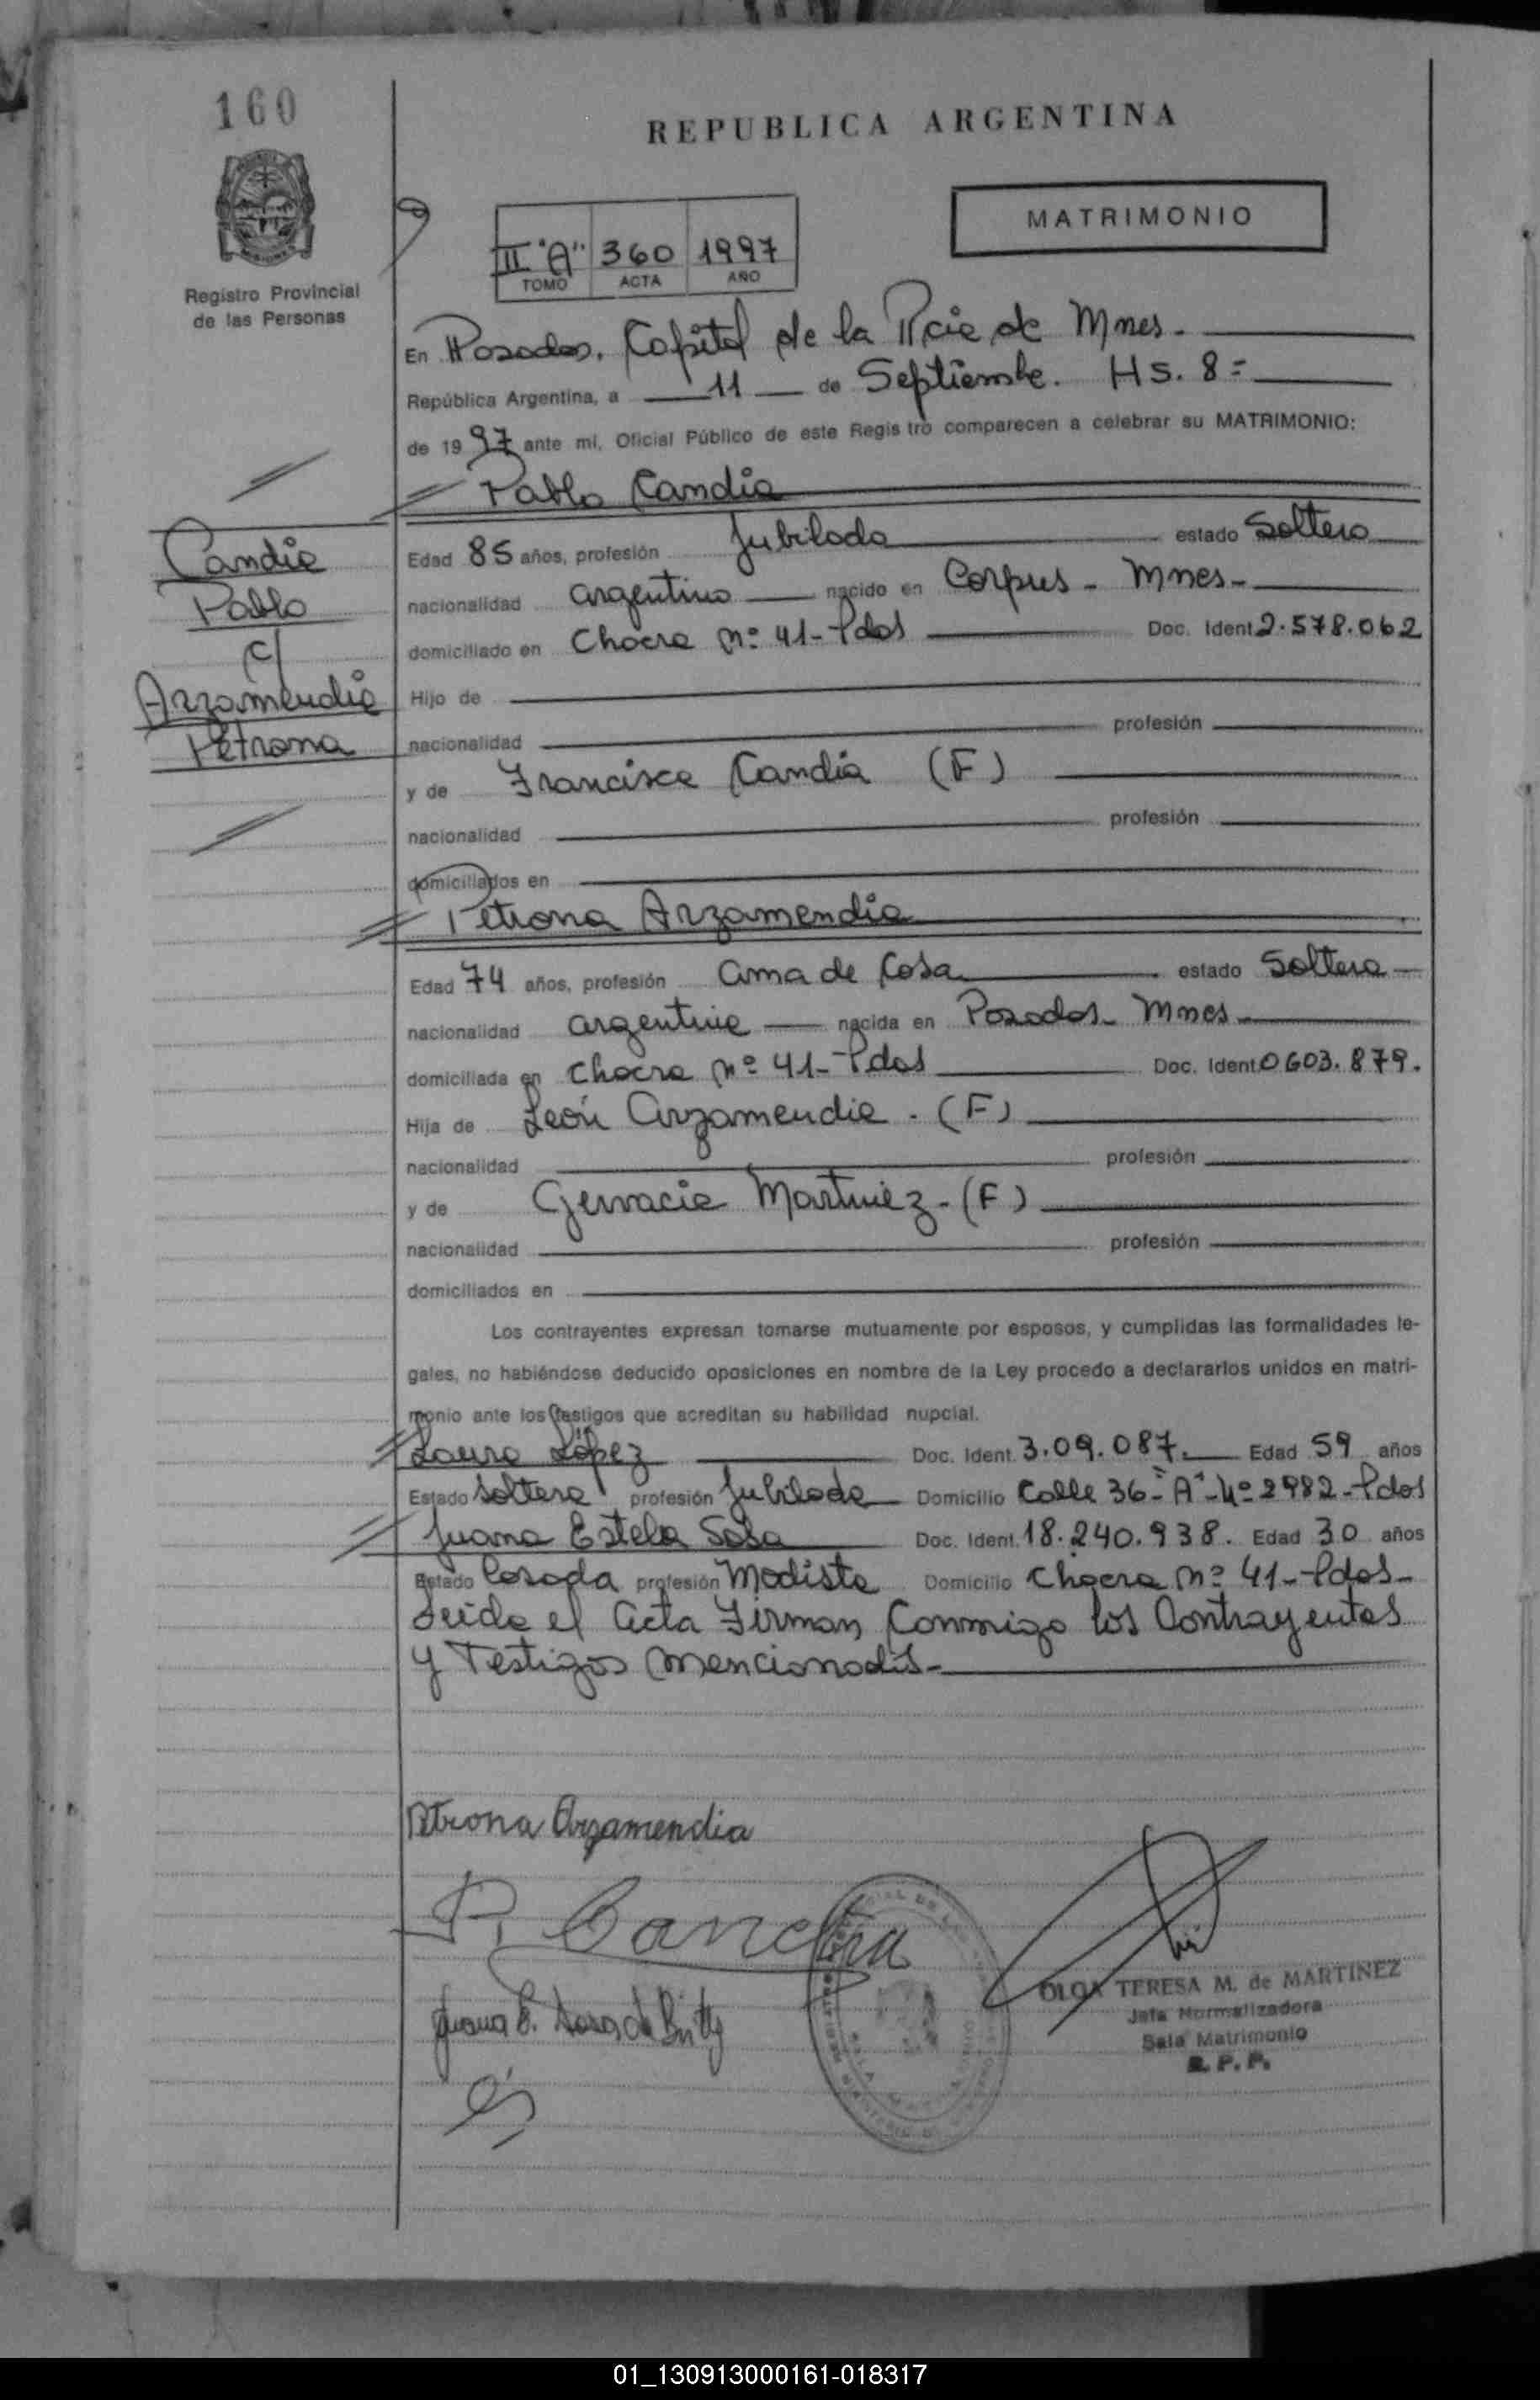 160
REPUBLICA ARGENTINA
MATRIMONIO
Registro Provincial
de las Personas
II "A" 360 1997
TOMO ACTA AÑO
En Posadas, Capital de la Pcia de Mnes.
República Argentina, a 11 de Septiembre. Hs. 8=
de 1997 ante mi, Oficial Público de este Registro comparecen a celebrar su MATRIMONIO:
Pablo Candia
Candia
Pablo
c/
Arzamendia
Petrona
Edad 85 años, profesión Jubilado estado Soltero
nacionalidad argentino nacido en Corpus - Mnes-
domiciliado en Chacra Nº 41- Pdas Doc. Ident 2.578.062
Hijo de
nacionalidad profesión
y de Francisca Candia (F)
nacionalidad profesión
domiciliados en
Petrona Arzamendia
Edad 74 años, profesión ama de Casa estado Soltera
nacionalidad argentina nacida en Posadas- Mnes-
domiciliada en Chacra Nº 41- Pdas Doc. Ident 0603.879.
Hija de León Arzamendia. (F)
nacionalidad profesión
y de Gervacia Martinez- (F)
nacionalidad profesión
domiciliados en
Los contrayentes expresan tomarse mutuamente por esposos, y cumplidas las formalidades le-
gales, no habiéndose deducido oposiciones en nombre de la Ley procedo a declararlos unidos en matri-
monio ante los testigos que acreditan su habilidad nupcial.
Laura López Doc. Ident. 3.09.087. Edad 59 años
Estado Soltera profesión Jubilada Domicilio Calle 36-"A"-Nº 2982-Pdas
Juana Estela Sosa Doc. Ident. 18.240.938. Edad 30 años
Estado Casada profesión Modista Domicilio Chacra Nº 41-Pdas-
Leida el Acta Firman Conmigo los Contrayentes
y Testigos mencionados-
Petrona Arzamendia
P. Candia
Juana E. Sosa de
OLGA TERESA M. de MARTINEZ
Jefa Normalizadora
Sala Matrimonio
R. P. P.
01_130913000161-018317